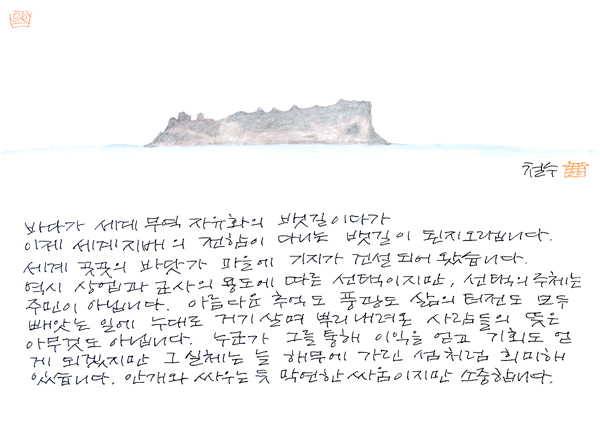 철수
바다가 세계 무역 자유화의 뱃길이다가
이제 세계지배의 전함이 다니는 뱃길이 된지오랍니다.
세계 곳곳의 바닷가 마을에 기지가 건설 되어 왔습니다.
역시 상업과 군사의 용도에 따른 선택이지만, 선택의 주체는
주민이 아닙니다. 아름다운 추억도 풍광도 삶의 터전도 모두
빼앗는 일에 누대로 거기 살며 뿌리내려온 사람들의 뜻은
아무것도 아닙니다. 누군가 그를 통해 이익을 얻고 기회도 얻
게 되겠지만 그 실체는 늘 해무에 가린 섬처럼 희미해
있습니다. 안개와 싸우는 듯 막연한 싸움이지만 소중합니다.